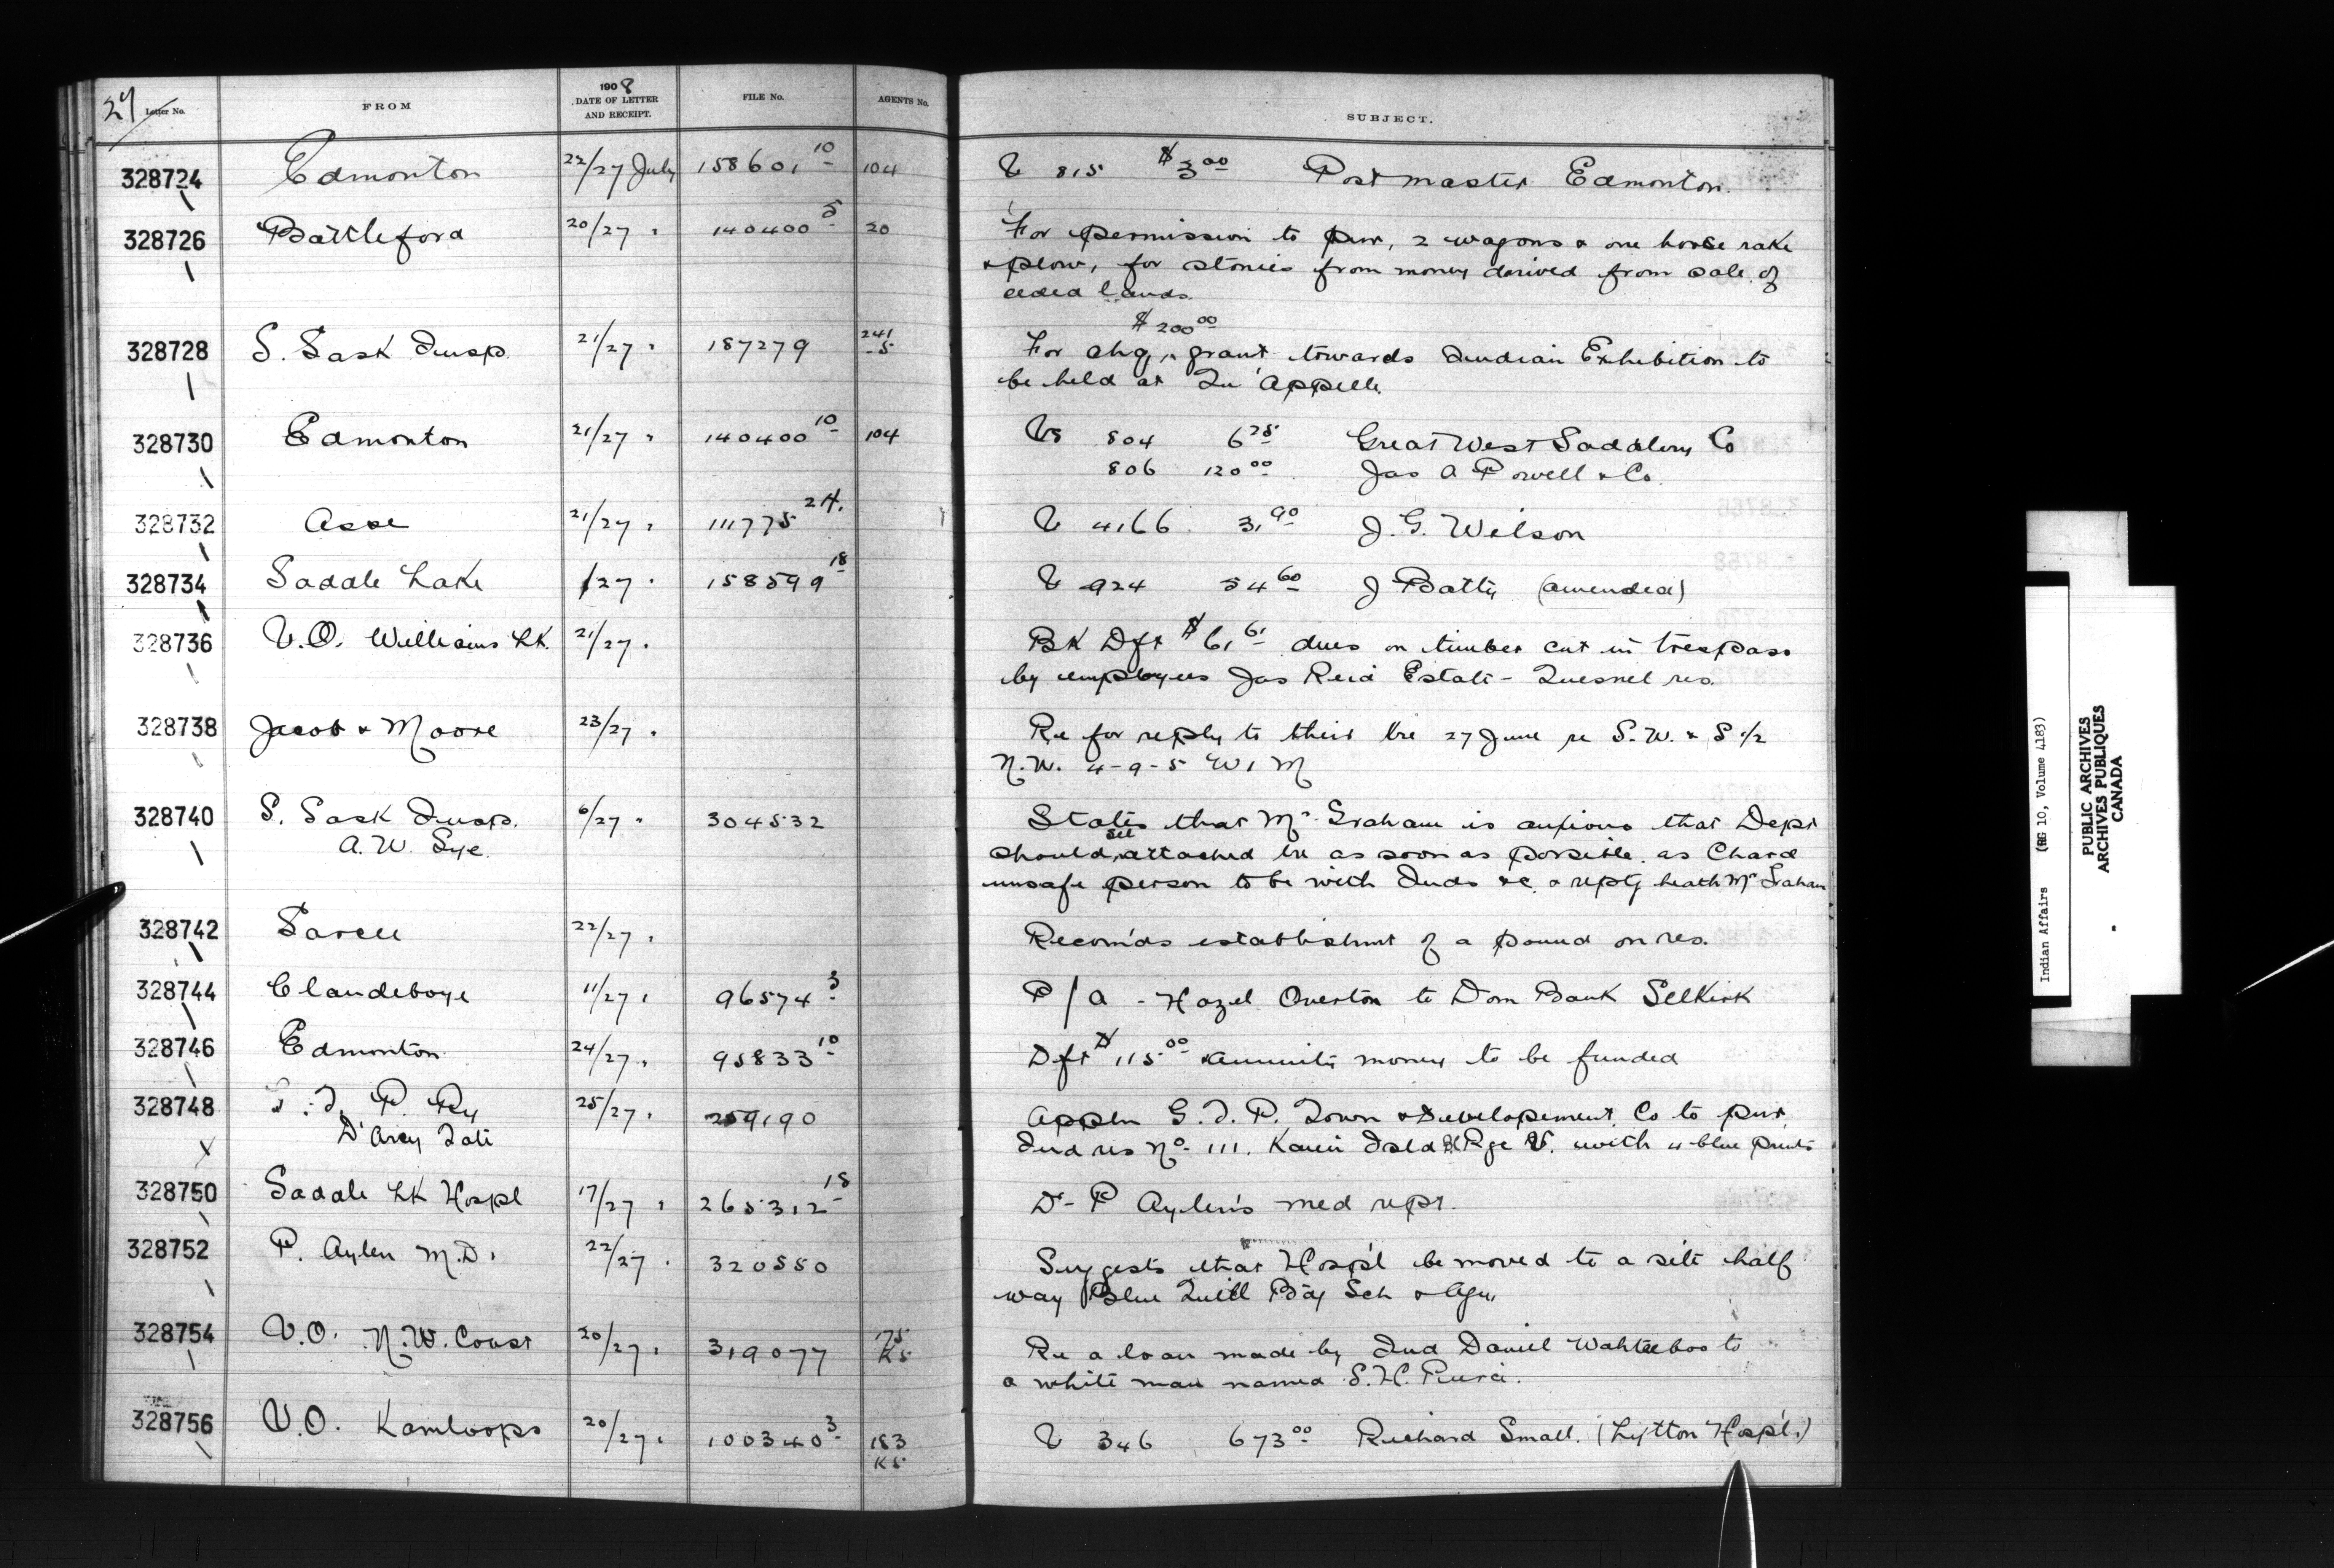 27 Letter No. FROM 1908 DATE OF LETTER AND RECEIPT. FILE No. AGENTS No. SUBJECT.
328724 Edmonton 22/27 July 158601 10 104 V 815 $3 00 Postmaster Edmonton.
328726 Battleford 20/27 " 140400 5 20 For permission to pur, 2 wagons & one horse rake
& plow, for stonies from money derived from sale of
ceded lands.
$200 00
328728 S. Sask Insp. 21/27 " 187279 241 -5 For chq, grant towards Indian Exhibition to
be held at Qu'Appelle.
328730 Edmonton 21/27 " 140400 10 104 Vs 804 6 75 Great West Saddlery Co
806 120 00 Jas A Powell & Co.
328732 Asse 21/27 " 111775 24. V 4166 3, 90 J. G. Wilson
328734 Saddle Lake /27 " 158599 18 V 924 54 60 J Batty (amended)
328736 V.O. Williams Lk. 21/27 " Bk Dft $61 61 dues on timber cut in trespass
by employees Jas Reid Estate - Quesnel res.
328738 Jacob & Moore 23/27 " Re for reply to their lre 27 June re S.W. & S 1/2
N.W. 4-9-5 W 1 M
328740 S. Sask Insp. 6/27 " 304532 States that Mr Graham is anxious that Dept
A. W. should see attached lre as soon as possible as Chard
unsafe person to be with Inds &c. & reptg heath Mr Graham
328742 Sarcee 22/27 " Recomds establishmt of a pound on res.
328744 Clandeboye 11/27 " 96574 3 P/a - Hazel Overton to Dom Bank Selkirk
328746 Edmonton 24/27 " 95833 10 Dft $115 00 annuity money to be funded
328748 G. T. P. Ry 25/27 " 259190 Appln G. T. P. Town & Developement Co to pur
D'Arcy Tate Ind res No. 111. Kaien Isld Rge V. with 4 blue prints
328750 Saddle Lk Hospl 17/27 " 265312 18 Dr P Aylen's med rept.
328752 P. Aylen M.D. 22/27 " 320550 Suggests that Hosp'l be moved to a site half
way Blue Quill Bdg Sch & Agcy
328754 V.O. N.W. Coast 20/27 " 319077 175 KS Re a loan made by Ind Daniel to
a white man named S. H.
328756 V.O. Kamloops 20/27 " 100340 3 183 KS V 346 673 00 Richard Small. (Lytton Hosp'l.)
Indian Affairs (RG 10, Volume 4183)
PUBLIC ARCHIVES
ARCHIVES PUBLIQUES
CANADA